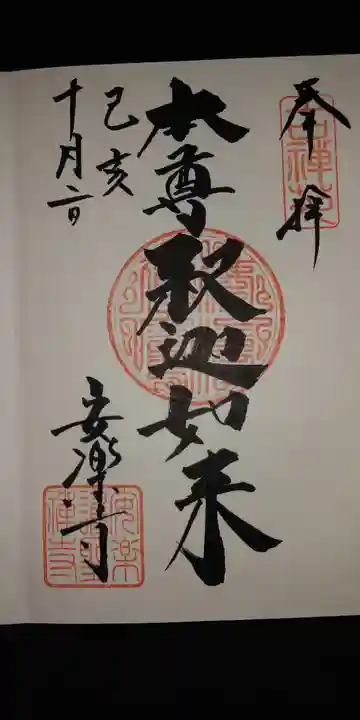 奉拝
本尊釈迦如来
己亥
十月二日
安楽寺